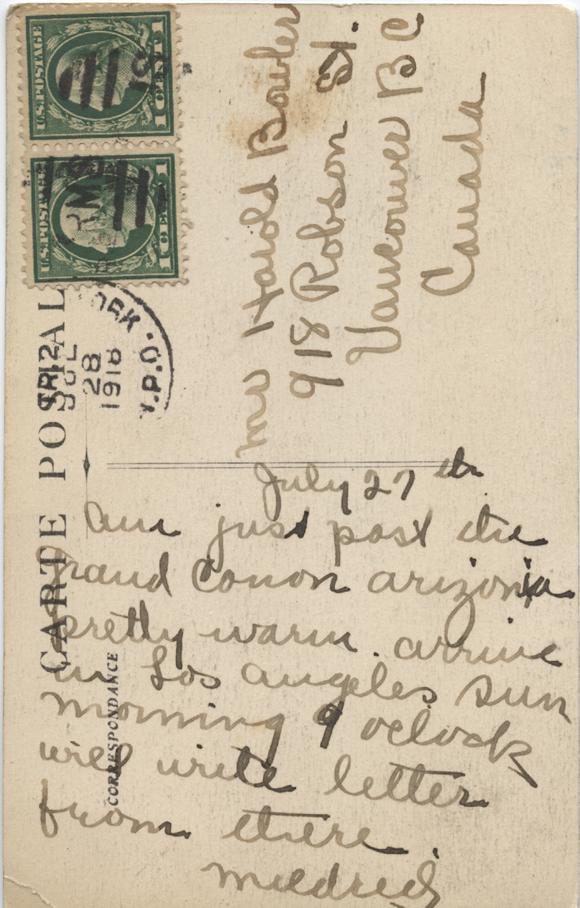 U.S. POSTAGE
1 CENT 1
U.S. POSTAGE
1 CENT 1
YORK
TR 12
JUL
28
1918
R.P.O.
CARTE POSTALE
CORRESPONDANCE
Mr Harold Bowler
918 Robson St.
Vancouver BC
Canada
July 27 th
Am just past the
Grand Canon arizonia
pretty warm. arrive
in Los angeles Sun
morning 9 oclock
will write letter
from there.
Mildred